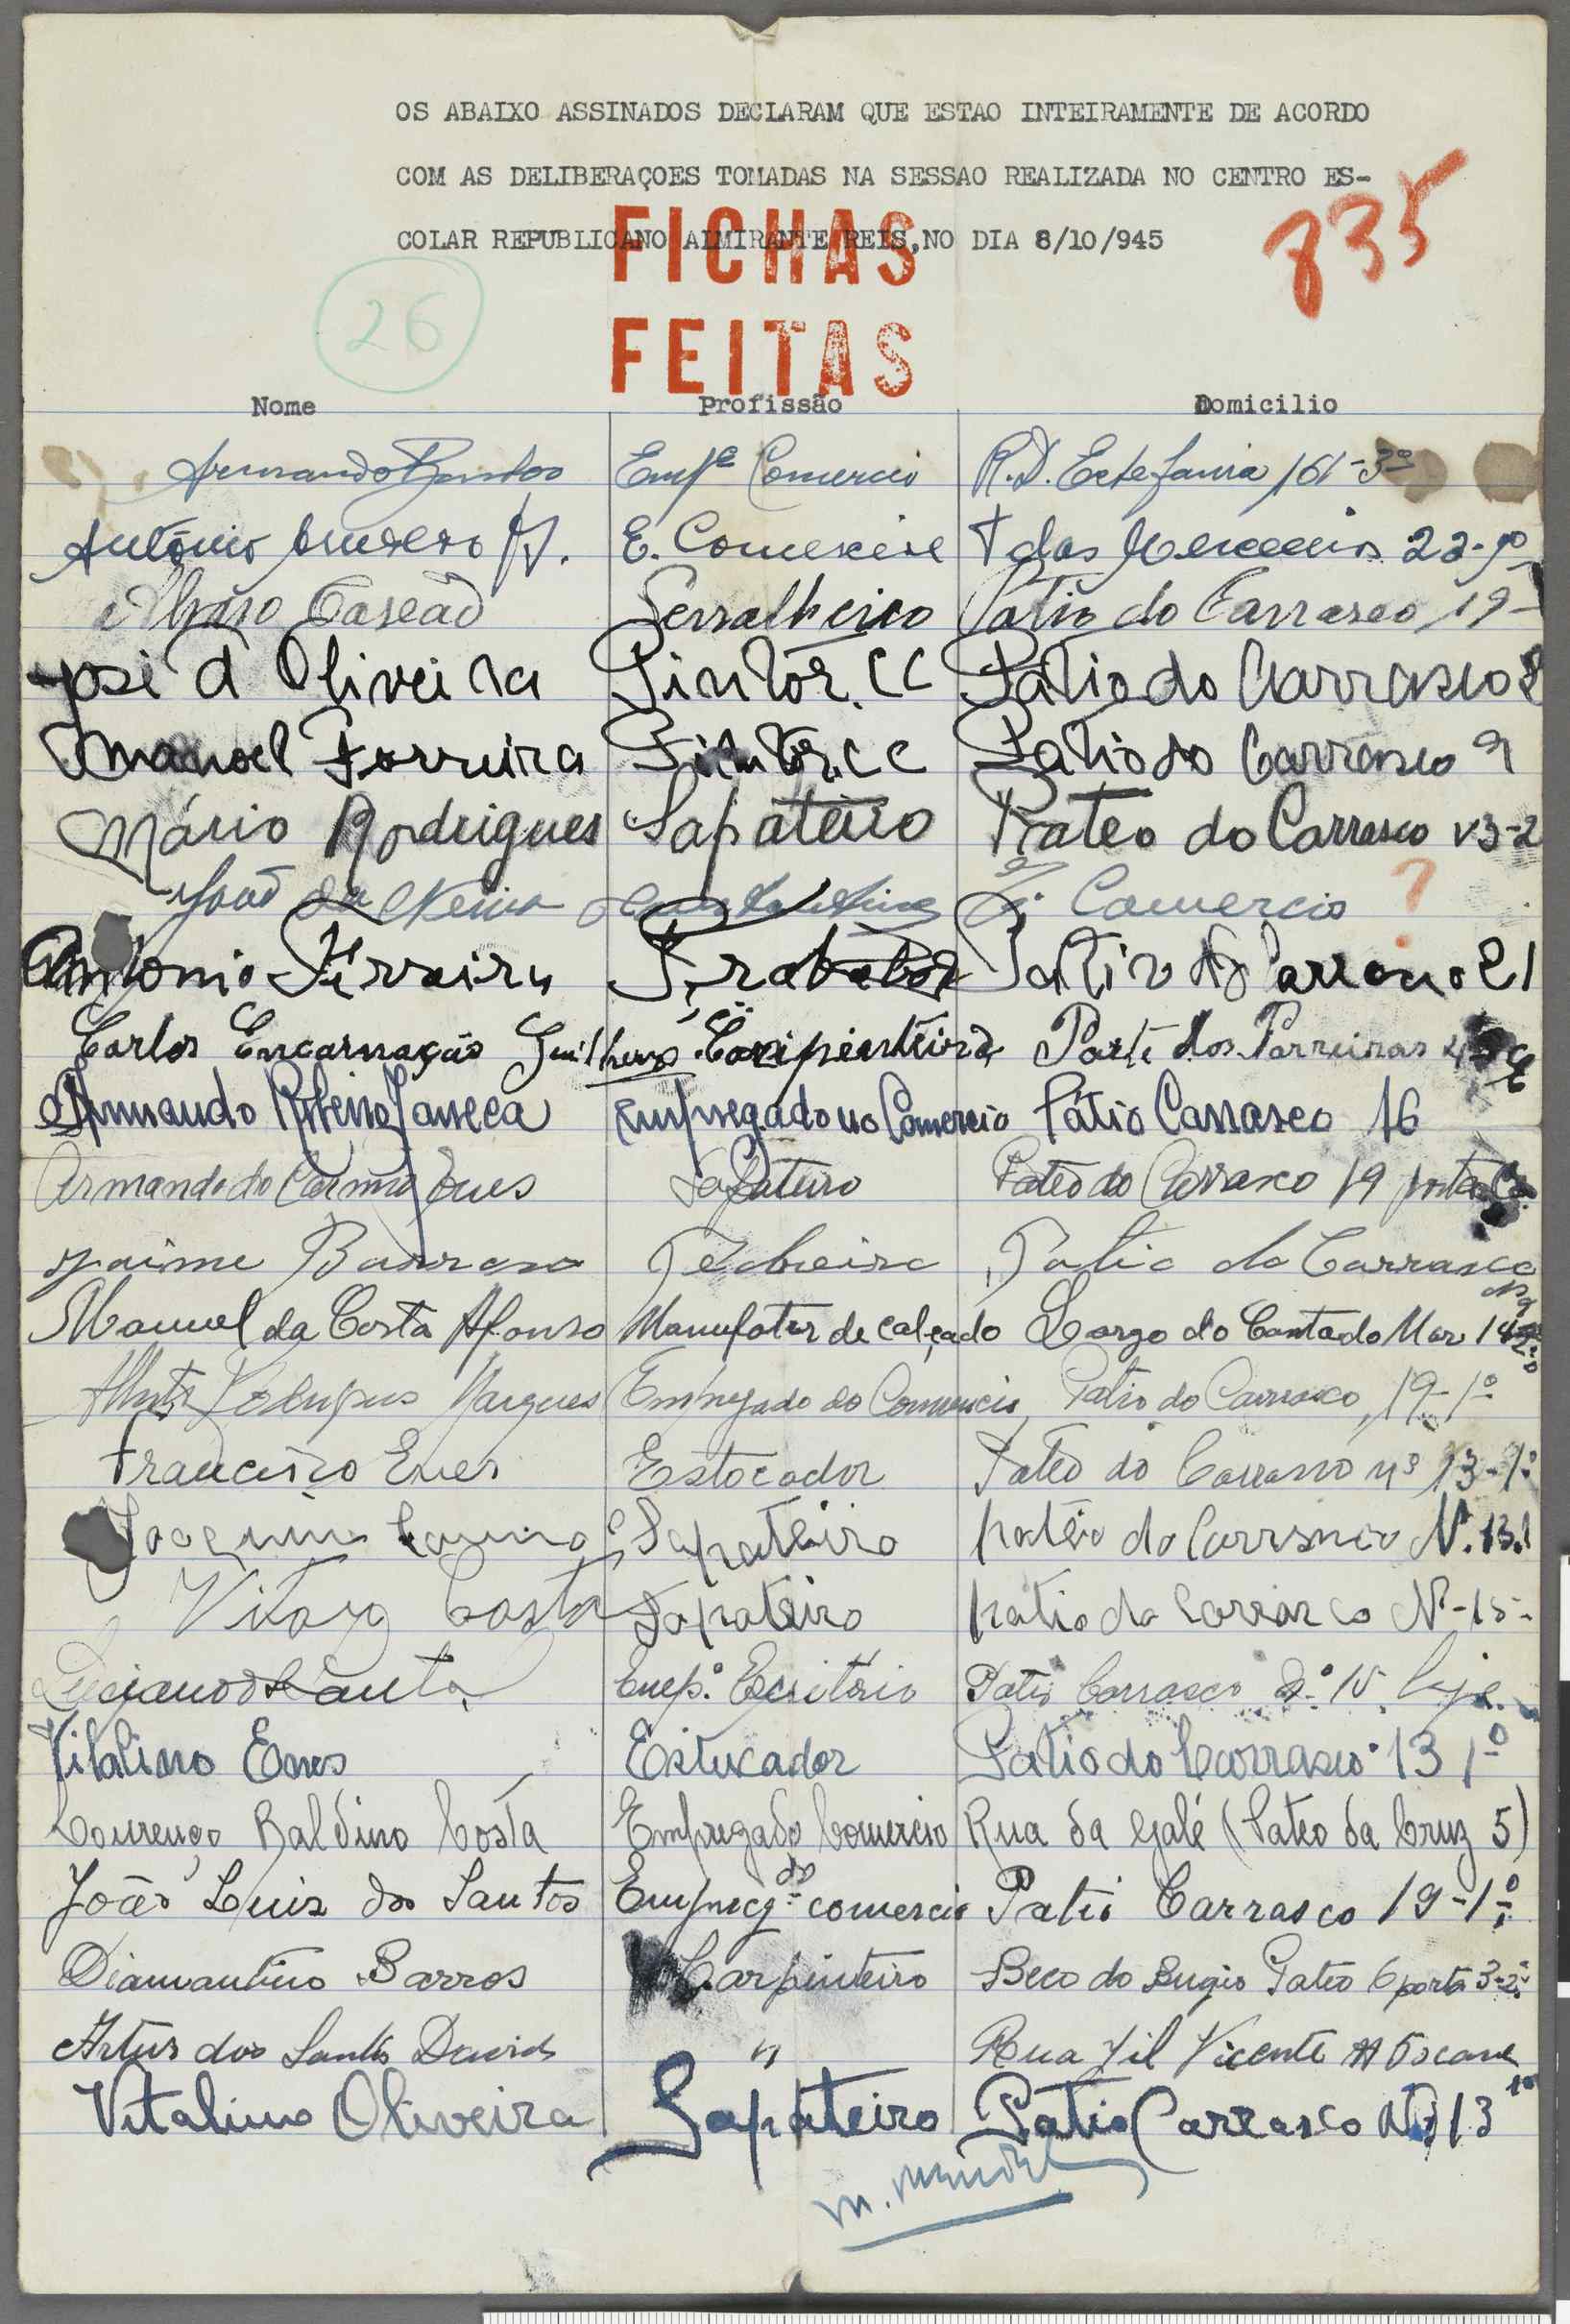 OS ABAIXO ASSINADOS DECLARAM QUE ESTAO INTEIRAMENTE DE ACORDO
COM AS DELIBERAÇOES TOMADAS NA SESSAO REALIZADA NO CENTRO ES-
COLAR REPUBLICANO ALMIRANTE REIS, NO DIA 8/10/945
835
FICHAS
FEITAS
26
Nome Profissão Domicilio
Armando Empe Comercio R. D. Estefania 161-3º
António E. Comercio T das 22-1º
Alvaro Cascão Serralheiro Patio do Carrasco 19-
José d Oliveira Pintor. CC Pátio do Carrasco
Manoel Ferreira Pintor. CC Patio do Carrasco 9
Mário Rodrigues Sapateiro Pateo do Carrasco 13-2
João da Comercio ?
Antonio Ferreira Patio do 21
Carlos Encarnação Guilherme Carpinteiro
Armando Ribeiro Fonseca Empregado no Comercio Pátio Carrasco 16
Armando do Carmo Sapateiro Pateo do Carrasco 19 porta
Jaime Barroso Patio do Carrasco
Manuel da Costa Afonso Manufator de calçado Largo do Contador Mor 14
Marques Empregado do Comercio, Patio do Carrasco, 19-1º
Francisco Enes Estocador Pateo do Carrasco nº 13-1º
Joaquim Sapateiro pateo do Carrasco Nº. 13.1
Vitor Costa Sapateiro patio do Carrasco Nº-15-
Luciano Empº. Escritório Patio Carrasco 15
Vitalino Enes Estucador Patio do Carrasco 13 1º
Lourenço Baldino Costa Empregado Comercio Rua da Galé (Pateo da Cruz 5)
João Luis dos Santos Empregdo comercio Patio Carrasco 19-1º
Diamantino Barros Carpinteiro Beco do Bugio Pateo 6 porta 3-2º
Artur dos Santos David " Rua Gil Vicente
Vitalino Oliveira Sapateiro Patio Carrasco Nº 13 1º